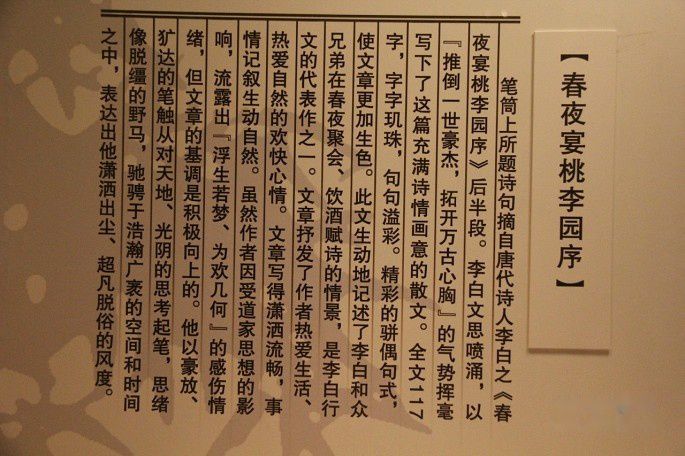 【春夜宴桃李园序】
笔筒上所题诗句摘自唐代诗人李白之《春
夜宴桃李园序》后半段。李白文思喷涌，以
『推倒一世豪杰，拓开万古心胸』的气势挥毫
写下了这篇充满诗情画意的散文。全文117
字，字字玑珠，句句溢彩。精彩的骈偶句式，
使文章更加生色。此文生动地记述了李白和众
兄弟在春夜聚会、饮酒赋诗的情景，是李白行
文的代表作之一。文章抒发了作者热爱生活、
热爱自然的欢快心情。文章写得潇洒流畅，事
情记叙生动自然。虽然作者因受道家思想的影
响，流露出『浮生若梦、为欢几何』的感伤情
绪，但文章的基调是积极向上的。他以豪放、
犷达的笔触从对天地、光阴的思考起笔，思绪
像脱缰的野马，驰骋于浩瀚广袤的空间和时间
之中，表达出他潇洒出尘、超凡脱俗的风度。